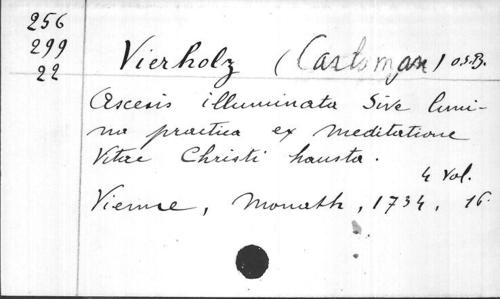 256
299
22
Vierholz (Carloman) O.S.B.
Ascesis illuminata Sive lumi-
na practica ex meditatione
Vitae Christi hausta.
4 Vol.
Vienne, Monath, 1734, 16.